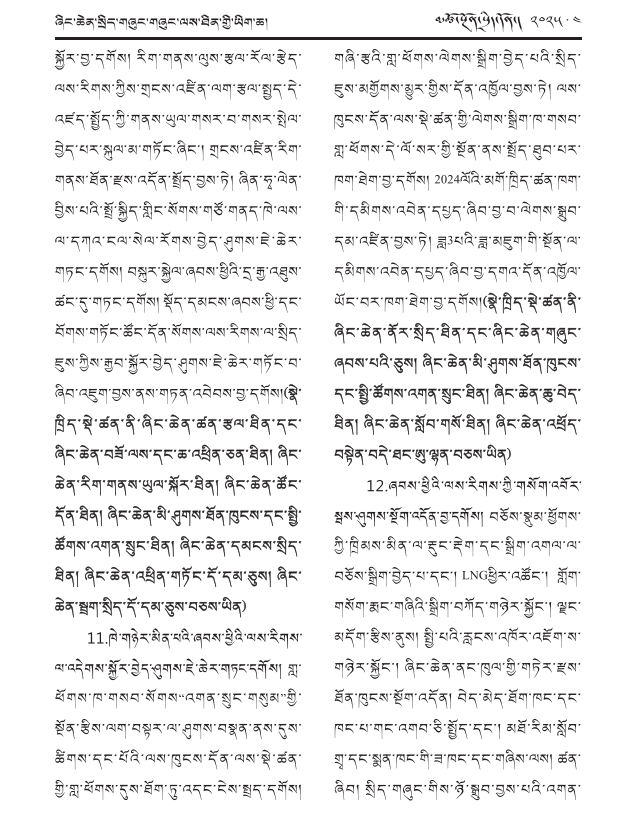 ཞིང་ཆེན་སྲིད་གཞུང་གཞུང་ལས་ཐིན་གྱི་ཡིག་ཆ།
༢༠༢༥ · ༤
སྐྱོར་བྱ་དགོས། རིག་གནས་ལུས་རྩལ་རོལ་རྩེད་
ལས་རིགས་ཀྱིས་གྲངས་འཛིན་ལག་རྩལ་སྤྱད་དེ་
འཛད་སྤྱོད་ཀྱི་གནས་ཡུལ་གསར་བ་གསར་སྤེལ་
བྱེད་པར་སྐུལ་མ་གཏོང་ཞིང་། གྲངས་འཛིན་རིག་
གནས་ཐོན་རྫས་འདོན་སྤྲོད་བྱས་ཏེ། ཞིན་ཧྭ་ལེན་
བྱིས་པའི་སྤྲོ་སྐྱིད་གླིང་སོགས་གཙོ་གནད་ཁེ་ལས་
ལ་དཀའ་ངལ་སེལ་རོགས་བྱེད་ཤུགས་ཇེ་ཆེར་
གཏང་དགོས། བསྐུར་སྐྱེལ་ཞབས་ཕྱིའི་དྲ་རྒྱ་འཐུས་
ཚང་དུ་གཏང་དགོས། སྡོད་དམངས་ཞབས་ཕྱི་དང་
བོགས་གཏོང་ཚོང་དོན་སོགས་ལས་རིགས་ལ་སྲིད་
ཇུས་ཀྱིས་རྒྱབ་སྐྱོར་བྱེད་ཤུགས་ཇེ་ཆེར་གཏོང་བ་
ཞིབ་འཇུག་བྱས་ནས་གཏན་འབེབས་བྱ་དགོས།(སྣེ་
ཁྲིད་སྡེ་ཚན་ནི་ཞིང་ཆེན་ཚན་རྩལ་ཐིན་དང་
ཞིང་ཆེན་བཟོ་ལས་དང་ཆ་འཕྲིན་ཅན་ཐིན། ཞིང་
ཆེན་རིག་གནས་ཡུལ་སྐོར་ཐིན། ཞིང་ཆེན་ཚོང་
དོན་ཐིན། ཞིང་ཆེན་མི་ཤུགས་ཐོན་ཁུངས་དང་སྤྱི་
ཚོགས་འགན་སྲུང་ཐིན། ཞིང་ཆེན་དམངས་སྲིད་
ཐིན། ཞིང་ཆེན་འཕྲིན་གཏོང་དོ་དམ་ཅུས། ཞིང་
ཆེན་སྦྲག་སྲིད་དོ་དམ་ཅུས་བཅས་ཡིན)
11.ཁེ་གཉེར་མིན་པའི་ཞབས་ཕྱིའི་ལས་རིགས་
ལ་འདེགས་སྐྱོར་བྱེད་ཤུགས་ཇེ་ཆེར་གཏང་དགོས། གླ་
ཕོགས་ཁ་གསབ་སོགས“འགན་སྲུང་གསུམ”གྱི་
སྔོན་རྩིས་ལག་བསྟར་ལ་ཤུགས་བསྣན་ནས་དུས་
ཚིགས་དང་པོའི་ལས་ཁུངས་དོན་ལས་སྡེ་ཚན་
གྱི་གླ་ཕོགས་དུས་ཐོག་ཏུ་འདང་ངེས་སྤྲད་དགོས།
གཞི་རྩའི་གླ་ཕོགས་ལེགས་སྒྲིག་བྱེད་པའི་སྲིད་
ཇུས་མགྱོགས་མྱུར་གྱིས་དོན་འཁྱོལ་བྱས་ཏེ། ལས་
ཁུངས་དོན་ལས་སྡེ་ཚན་གྱི་ལེགས་སྒྲིག་ཁ་གསབ་
གླ་ཕོགས་དེ་ལོ་སར་གྱི་སྔོན་ནས་སྤྲོད་ཐུབ་པར་
ཁག་ཐེག་བྱ་དགོས། 2024ལོའི་མགོ་ཁྲིད་ཚན་ཁག་
གི་དམིགས་འབེན་དཔྱད་ཞིབ་བྱ་བ་ལེགས་སྒྲུབ་
དམ་འཛིན་བྱས་ཏེ། ཟླ3པའི་ཟླ་མཇུག་གི་སྔོན་ལ་
དམིགས་འབེན་དཔྱད་ཞིབ་བྱ་དགའ་དོན་འཁྱོལ་
ཡོང་བར་ཁག་ཐེག་བྱ་དགོས།(སྣེ་ཁྲིད་སྡེ་ཚན་ནི་
ཞིང་ཆེན་ནོར་སྲིད་ཐིན་དང་ཞིང་ཆེན་གཞུང་
ཞབས་པའི་ཅུས། ཞིང་ཆེན་མི་ཤུགས་ཐོན་ཁུངས་
དང་སྤྱི་ཚོགས་འགན་སྲུང་ཐིན། ཞིང་ཆེན་ཆུ་བེད་
ཐིན། ཞིང་ཆེན་སློབ་གསོ་ཐིན། ཞིང་ཆེན་འཕྲོད་
བསྟེན་བདེ་ཐང་ཨུ་ལྷན་བཅས་ཡིན)
12.ཞབས་ཕྱིའི་ལས་རིགས་ཀྱི་གསོག་འབོར་
སྦས་ཤུགས་སྔོག་འདོན་བྱ་དགོས། བཅོས་སྣུམ་ཕྱོགས་
ཀྱི་ཁྲིམས་མིན་ལ་རྡུང་རྡེག་དང་སྒྲིག་འགལ་ལ་
བཅོས་སྒྲིག་བྱེད་པ་དང་། LNGཕྱིར་འཚོང་། གློག་
གསོག་རྨང་གཞིའི་སྒྲིག་བཀོད་གཉེར་སྐྱོང་། ལྗང་
མདོག་རྩིས་ནུས། སྤྱི་པའི་རླངས་འཁོར་འཇོག་ས་
གཉེར་སྐྱོང་། ཞིང་ཆེན་ནང་ཁུལ་གྱི་གཏེར་རྫས་
ཐོན་ཁུངས་སྔོག་འདོན། བེད་མེད་ཐོག་ཁང་དང་
ཁང་པ་གང་འགབ་ཅི་སྤྱོད་དང་། མཐོ་རིམ་སློབ་
གྲྭ་དང་སྨན་ཁང་གི་ཟ་ཁང་དང་གཞིས་ལས། ཚན་
ཞིབ། སྲིད་གཞུང་གིས་ཉོ་སྒྲུབ་བྱས་པའི་འགན་